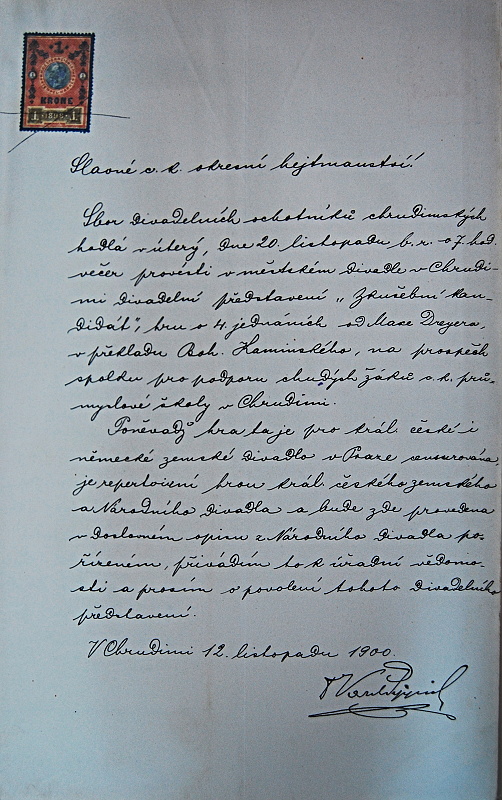 1
KRONE
1 1898 1
Slavné c. k. okresní hejtmanství!
Sbor divadelních ochotníků chrudimských
hodlá v úterý, dne 20. listopadu b. r. o 7 hod.
večer provésti v městském divadle v Chrudi-
mi divadelní představení „Zkušební kan-
didát“, hru o 4 jednáních od Maxe Dreyera,
v překladu Boh. Kaminského, na prospěch
spolku pro podporu chudých žáků c. k. prů-
myslové školy v Chrudimi.
Poněvadž hra ta je pro král. české i
německé zemské divadlo v Praze censurována,
je repertoirní hrou král. českého zemského
a Národního divadla a bude zde provedena
v doslovném opisu z Národního divadla po-
řízeném, přivádím to k úřední vědomo-
sti a prosím o povolení tohoto divadelního
představení.
V Chrudimi 12. listopadu 1900.
Karel Pippich